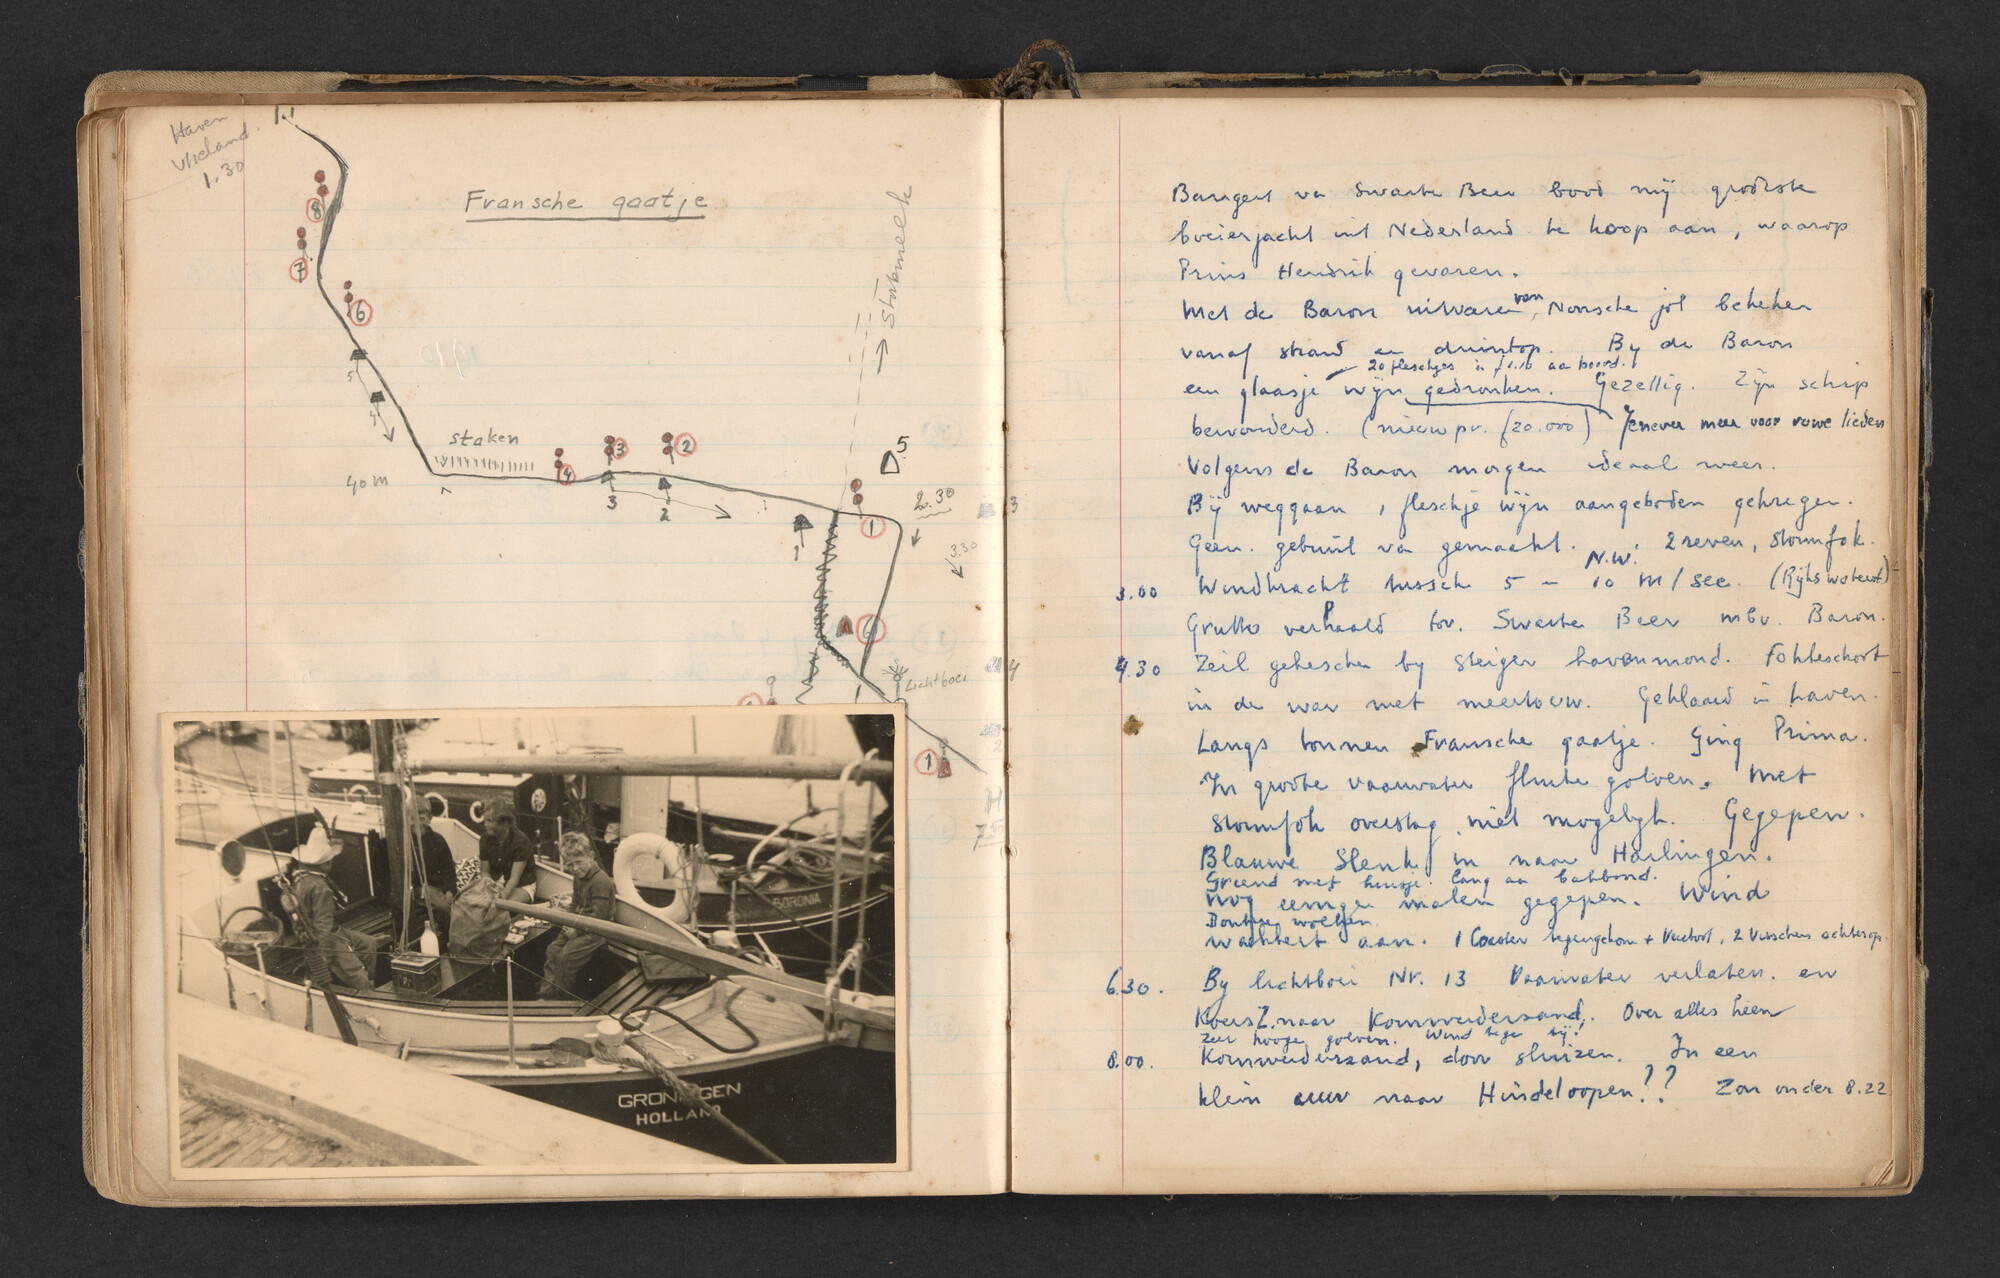 Haven
Vlieland.
1.30
Fransche gaatje
Stortemelk
8
7
6
5
4
staken
40 m
4
3
2
3
2
5
2.30
1
1
3.30
6
Lichtboei
1
GRONINGEN
HOLLAND
BORONIA
Swarte Beer bood mij grootste
boeierjacht uit Nederland te koop aan, waarop
Prins Hendrik gevaren.
Met de Baron uitvaren van Noorsche jol bekeken
vanaf strand en duintop. By de Baron
20 fleschjes aa boord.
een glaasje wijn gedronken. Gezellig. Zijn schip
bewonderd. (nieuw pr. f 20.000) Jenever meer voor ruwe lieden
Volgens de Baron morgen ideaal weer.
Bij weggaan 1 fleschje wijn aangeboden gekregen.
Geen gebruik va gemaakt. 2 reven, stormfok.
N.W.
3.00 Windkracht tussch 5 – 10 m/sec. (Rijkswaterst)
Grutto verhaald tov. Swarte Beer mbv. Baron.
4.30 Zeil geheschen by steiger havenmond. Fokkeschoot
in de war met meertouw. Geklaard in haven.
Langs tonnen Fransche gaatje. Ging Prima.
In groote vaarwater flinke golven. Met
stormfok overstag niet mogelijk. Gegepen.
Blauwe Slenk in naar Harlingen.
Griend met huisje. lang aa bakboord.
nog eenige malen gegepen. Wind
Donkere wolken
wakkert aan. 1 Coaster tegengekom + Veerboot, 2 Visschers achterop.
6.30. By lichtboei Nr. 13 Vaarwater verlaten. en
Koers Z. naar Kornwerderzand. Over alles heen
Zeer hooge golven. Wind tege tij!
8.00. Kornwerderzand, door sluizen. In een
klein uur naar Hindeloopen?? Zon onder 8.22